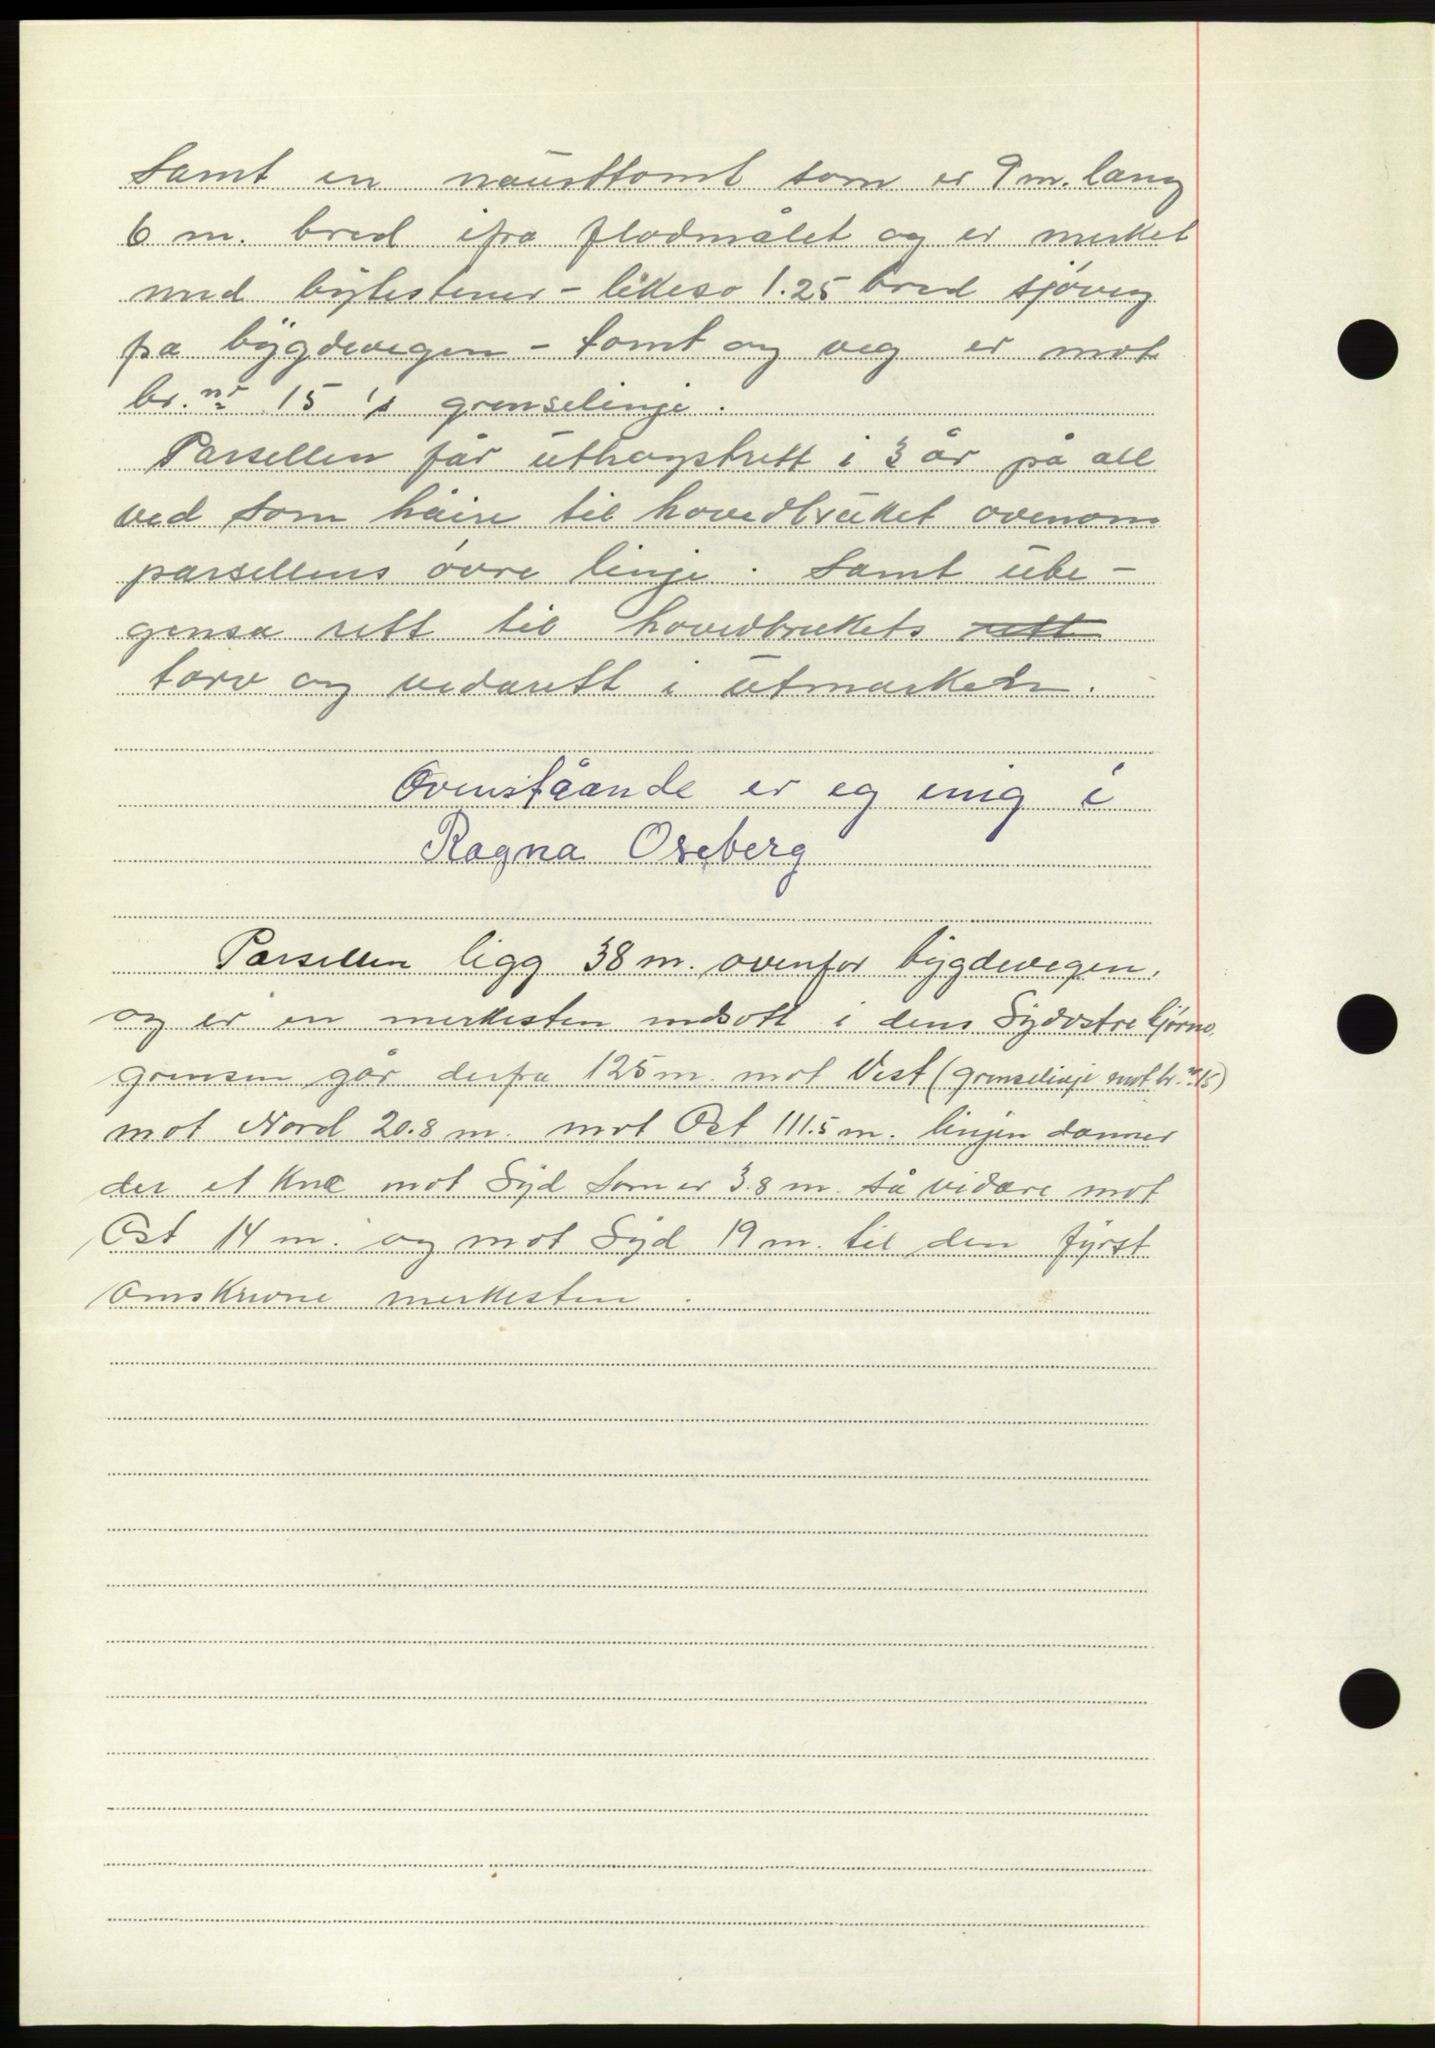 Samt en nausttomt som er 9 m. lang
6 m. bred ifra flodmålet og er merket
med bytestener - likeso 1.25 bred sjøveg
fra bygdevegen - tomt og veg er mot
br. nr 15's grenselinje.
Parsellen får uthogstrett i 3 år på all
ved som høire til hovedbruket ovenom
parsellens øvre linje. Samt ube-
gensa rett til hovedbrukets rett
torv og vedarett i utmarken.
Ovenståande er eg enig i
Ragna Oseberg
Parsellen ligg 38 m. ovenfor bygdevegen,
og er en merkesten nedsatt i dens Sydøstre hjørne,
grensen går derfra 125 m. mot Vest (grenselinje mot br. nr 15)
mot Nord 20.8 m. mot Øst 111.5 m. linjen danner
der et kne mot Syd som er 3.8 m. så vidare mot
Øst 14 m. og mot Syd 19 m. til den fyrst
omskrevne merkesten.